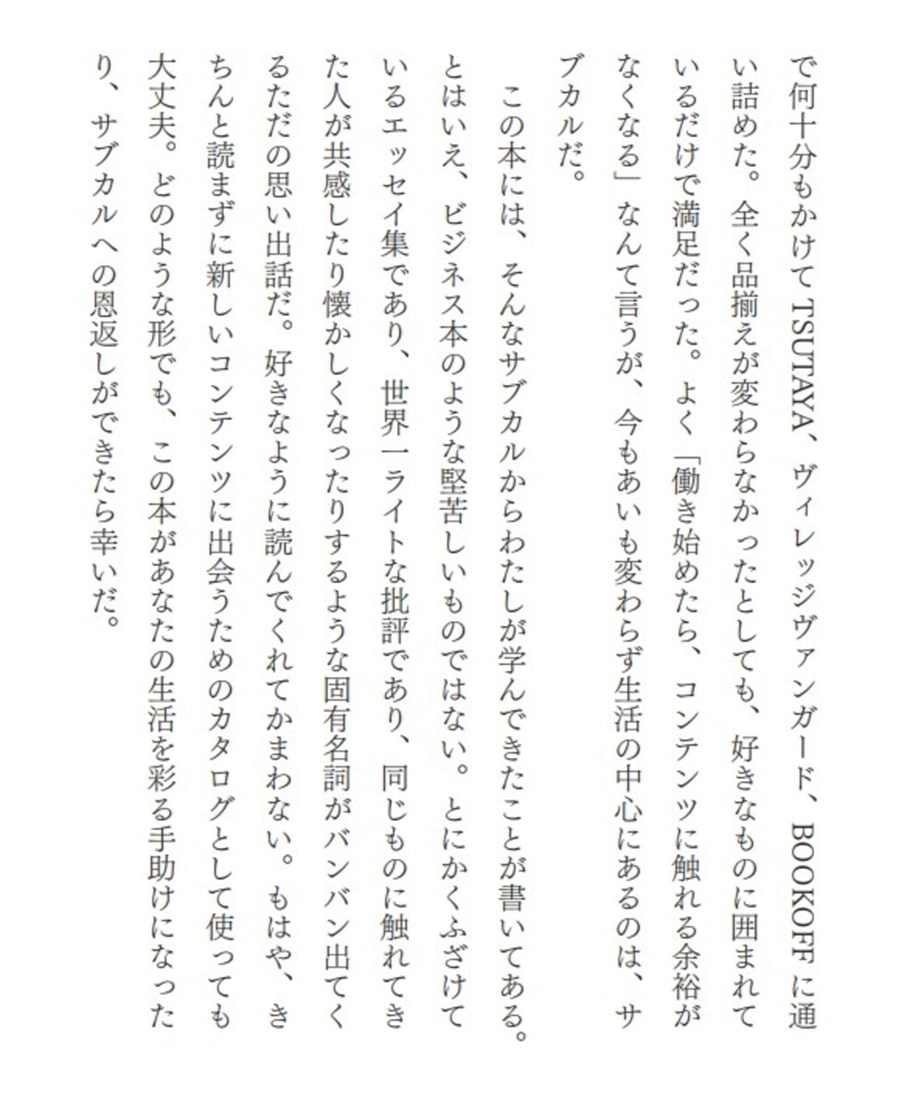 で何十分もかけて TSUTAYA、ヴィレッジヴァンガード、BOOKOFF に通
い詰めた。全く品揃えが変わらなかったとしても、好きなものに囲まれて
いるだけで満足だった。よく「働き始めたら、コンテンツに触れる余裕が
なくなる」なんて言うが、今もあいも変わらず生活の中心にあるのは、サ
ブカルだ。
　この本には、そんなサブカルからわたしが学んできたことが書いてある。
とはいえ、ビジネス本のような堅苦しいものではない。とにかくふざけて
いるエッセイ集であり、世界一ライトな批評であり、同じものに触れてき
た人が共感したり懐かしくなったりするような固有名詞がバンバン出てく
るただの思い出話だ。好きなように読んでくれてかまわない。もはや、き
ちんと読まずに新しいコンテンツに出会うためのカタログとして使っても
大丈夫。どのような形でも、この本があなたの生活を彩る手助けになった
り、サブカルへの恩返しができたら幸いだ。